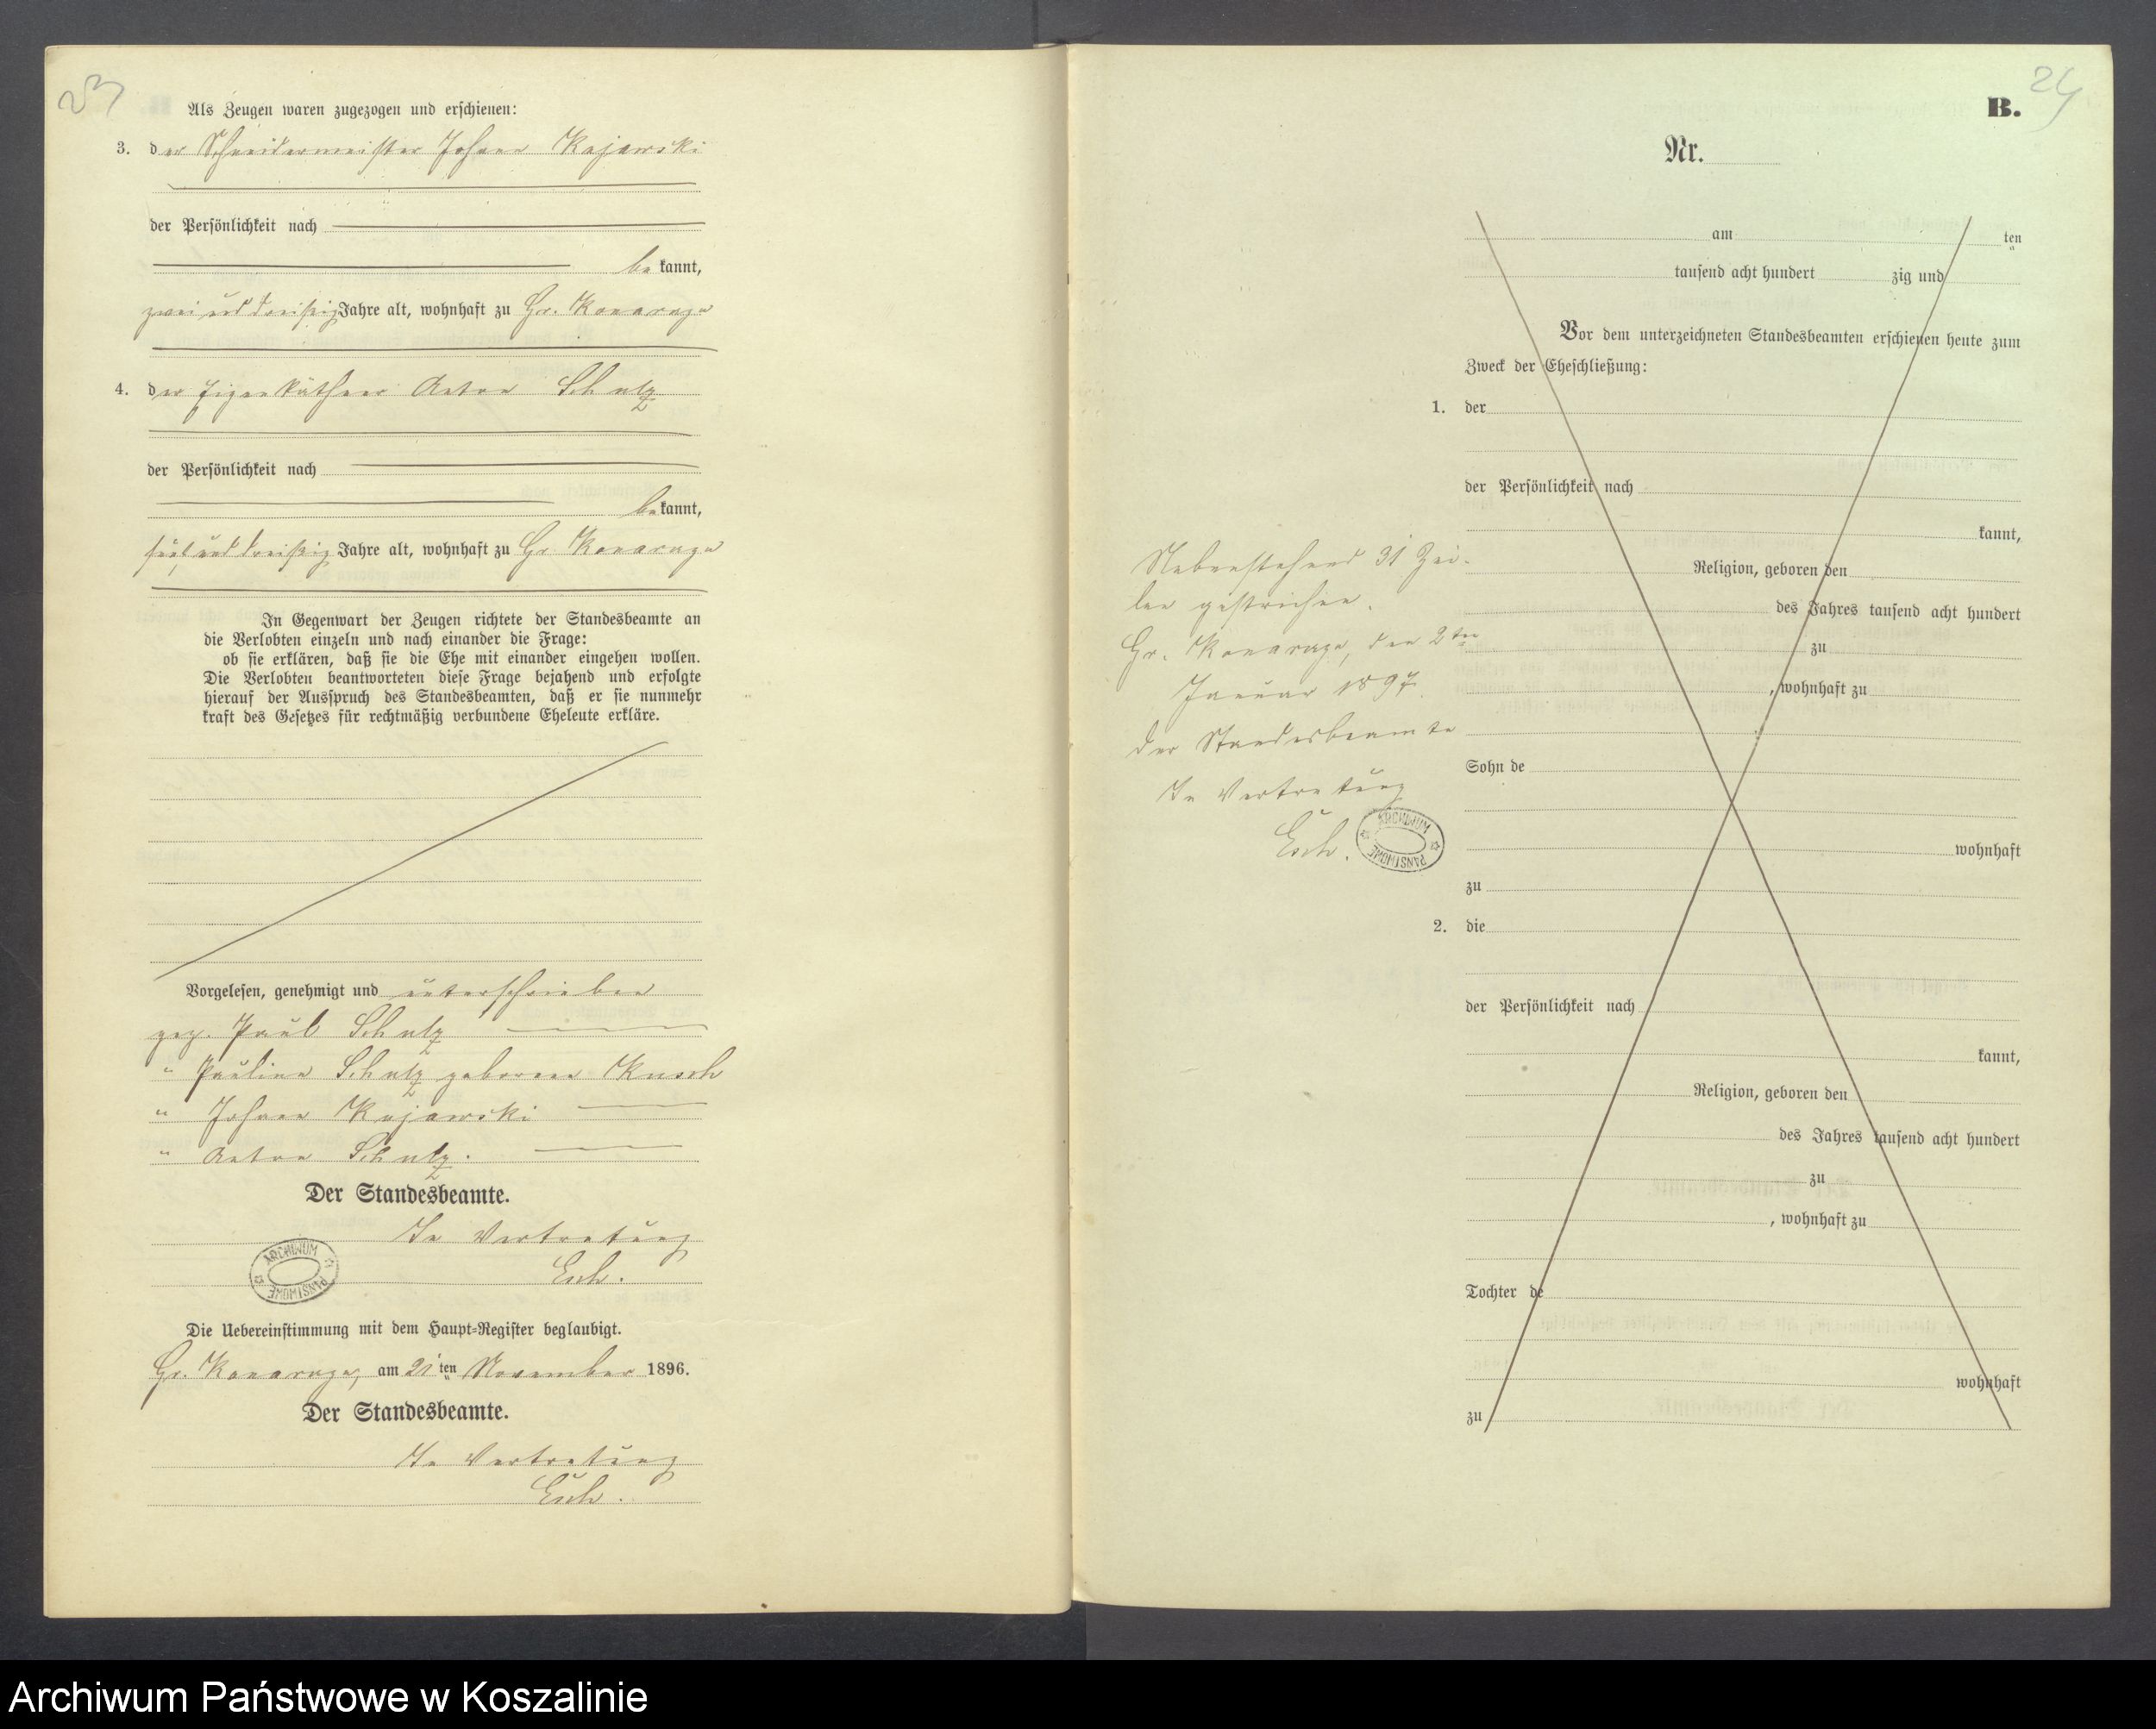 Als Zeugen waren zugezogen und erschienen:
3. der Schneidermeister Johann Kajawski
der Persönlichkeit nach
bekannt,
zwei und dreißig Jahre alt, wohnhaft zu Gr. Konarczyn
4. der Eigenkäthner Anton Schulz
der Persönlichkeit nach
bekannt,
fünf und dreißig Jahre alt, wohnhaft zu Gr. Konarczyn
In Gegenwart der Zeugen richtete der Standesbeamte an
die Verlobten einzeln und nach einander die Frage:
ob sie erklären, daß sie die Ehe mit einander eingehen wollen.
Die Verlobten beantworteten diese Frage bejahend und erfolgte
hierauf der Ausspruch des Standesbeamten, daß er sie nunmehr
kraft des Gesetzes für rechtmäßig verbundene Eheleute erkläre.
Vorgelesen, genehmigt und unterschrieben
gez. Paul Schulz
" Pauline Schulz geborene
" Johann Kajawski
" Anton Schulz.
Der Standesbeamte.
In Vertretung
ARCHIWUM PAŃSTWOWE
Die Uebereinstimmung mit dem Haupt-Register beglaubigt.
Gr. Konarczyn, am 21ten November 1896.
Der Standesbeamte.
In Vertretung
24
B.
Nr.
am ten
tausend acht hundert zig und
Vor dem unterzeichneten Standesbeamten erschienen heute zum
Zweck der Eheschließung:
1. der
der Persönlichkeit nach
kannt,
Religion, geboren den
des Jahres tausend acht hundert
zu
, wohnhaft zu
Sohn de
wohnhaft
zu
2. die
der Persönlichkeit nach
kannt,
Religion, geboren den
des Jahres tausend acht hundert
zu
, wohnhaft zu
Tochter de
wohnhaft
zu
Nebenstehend 31 Zei-
len gestrichen.
Gr. Konarczyn, den 2ten
Januar 1897.
Der Standesbeamte
In Vertretung
ARCHIWUM PAŃSTWOWE
Archiwum Państwowe w Koszalinie